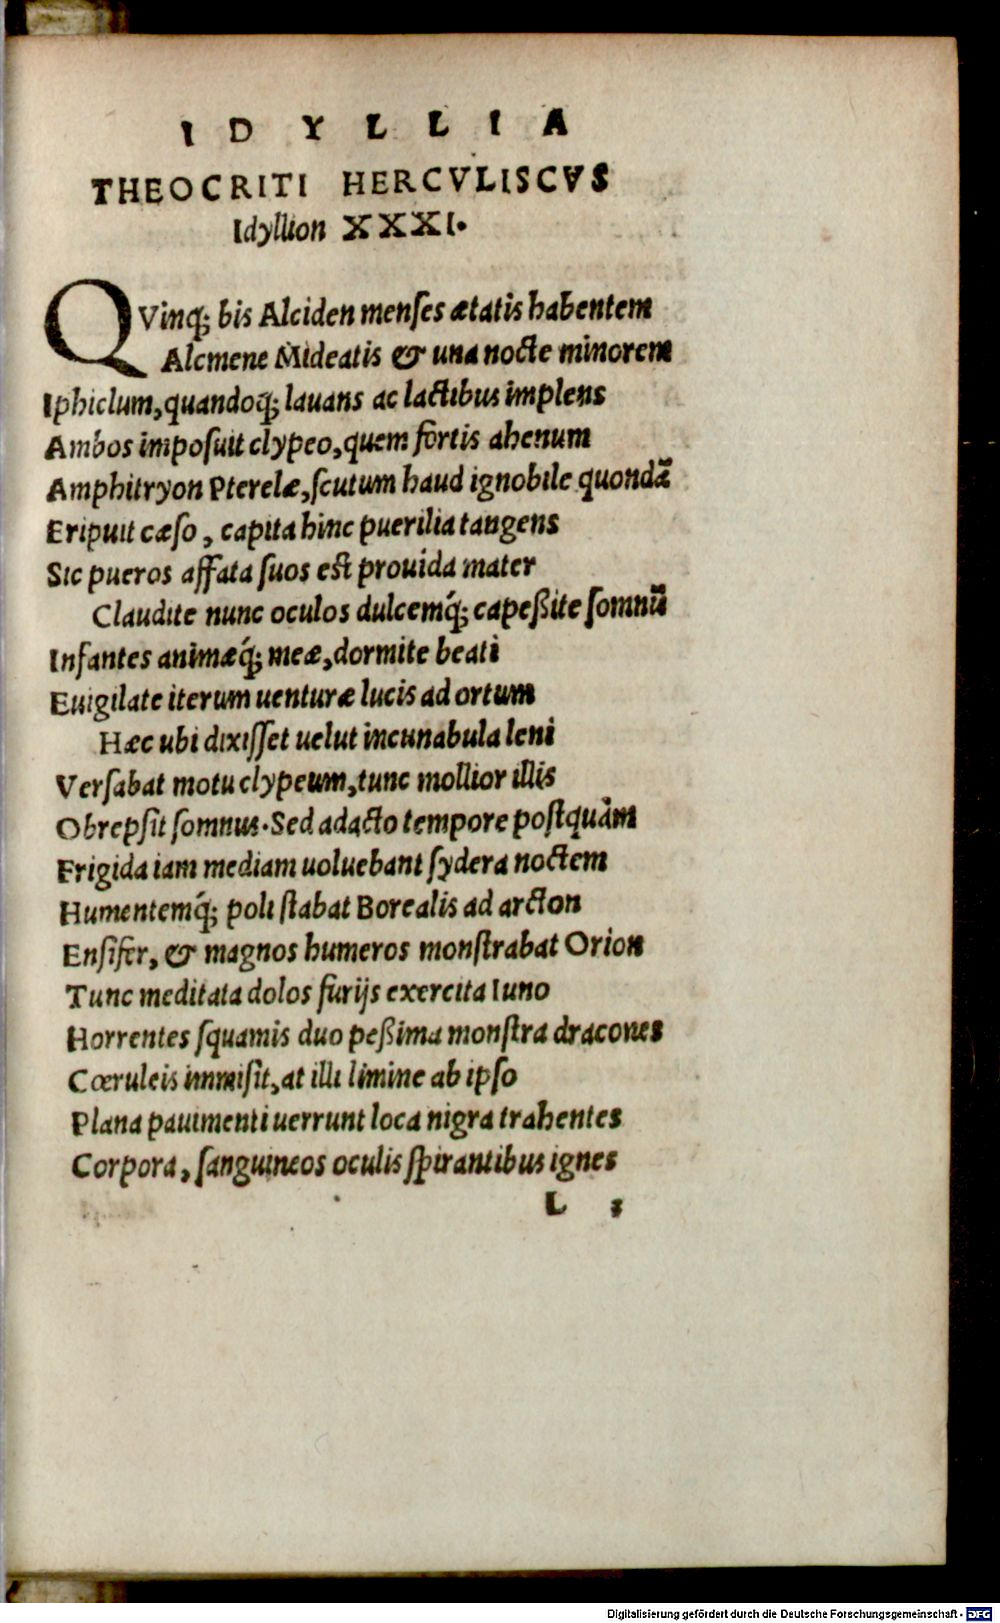 IDYLLIA
THEOCRITI HERCVLISCVS
Idyllion XXXI.
QVinq; bis Alciden menses ætatis habentem
Alcmene Mideatis & una nocte minorem
Iphiclum, quandoq; lauans ac lactibus implens
Ambos imposuit clypeo, quem fortis ahenum
Amphitryon Pterelæ, scutum haud ignobile quondã
Eripuit cæso, capita hinc puerilia tangens
Sic pueros affata suos est prouida mater
Claudite nunc oculos dulcemq́; capeßite somnũ
Infantes animæq́; meæ, dormite beati
Euigilate iterum uenturæ lucis ad ortum
Hæc ubi dixisset uelut incunabula leni
Versabat motu clypeum, tunc mollior illis
Obrepsit somnus. Sed adacto tempore postquàm
Frigida iam mediam uoluebant sydera noctem
Humentemq́; poli stabat Borealis ad arcton
Ensifer, & magnos humeros monstrabat Orion
Tunc meditata dolos furijs exercita Iuno
Horrentes squamis duo peßima monstra dracones
Cœruleis immisit, at illi limine ab ipso
Plana pauimenti uerrunt loca nigra trahentes
Corpora, sanguineos oculis spirantibus ignes
L
Digitalisierung gefördert durch die Deutsche Forschungsgemeinschaft - DFG